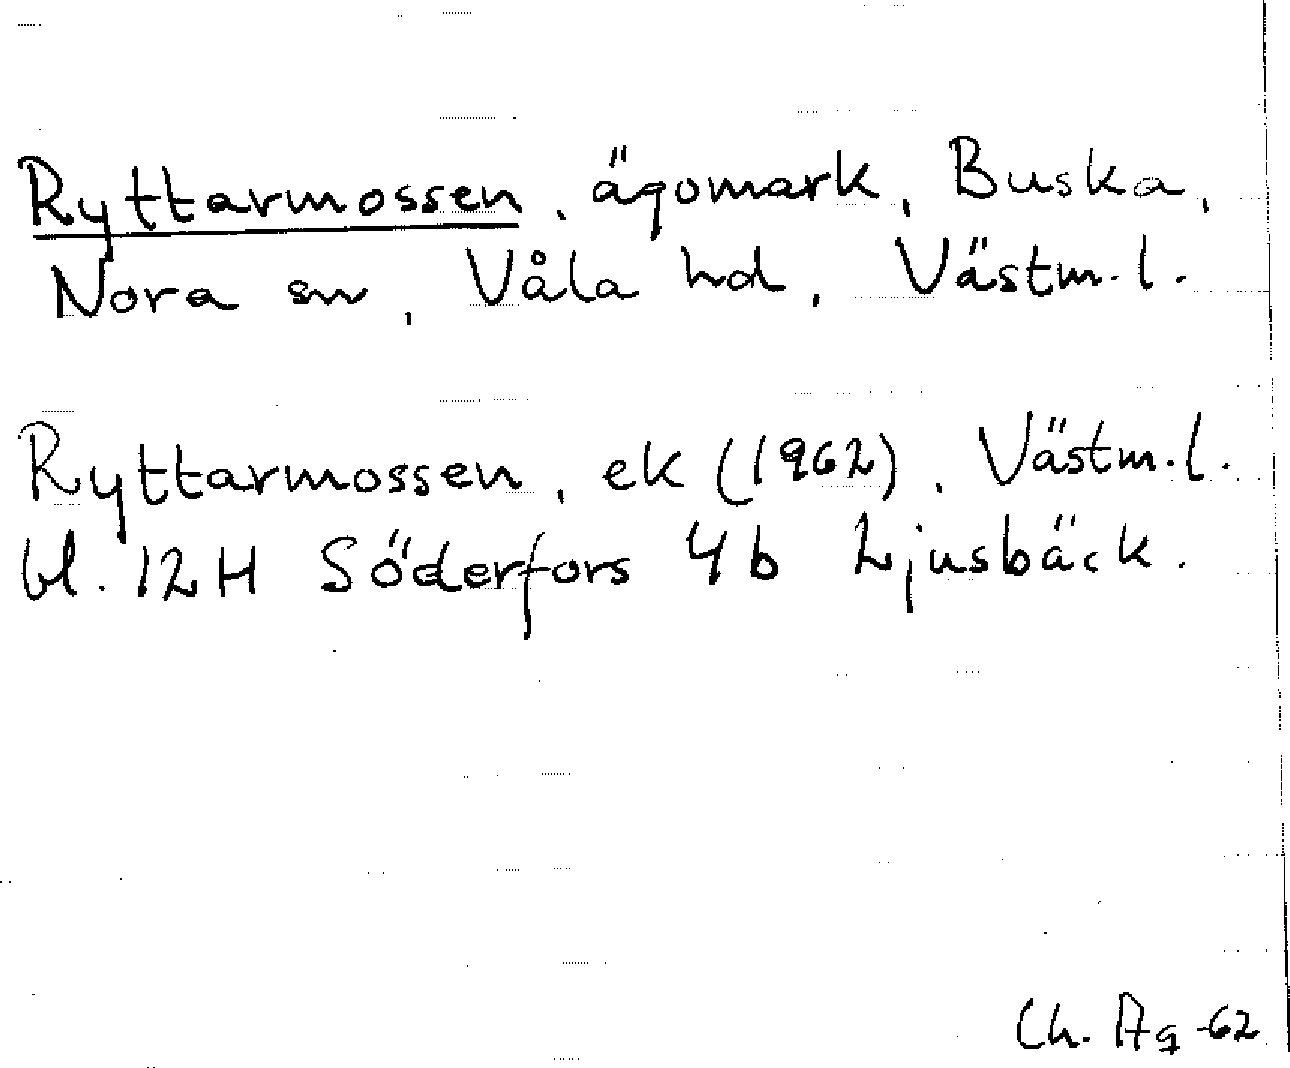 Ryttarmossen, ägomark, Buska,
Nora sn, Våla hd, Västm.l.
Ryttarmossen, ek (1962), Västm.l.
bl. 12H Söderfors 4b Ljusbäck.
Ch. Ag -62